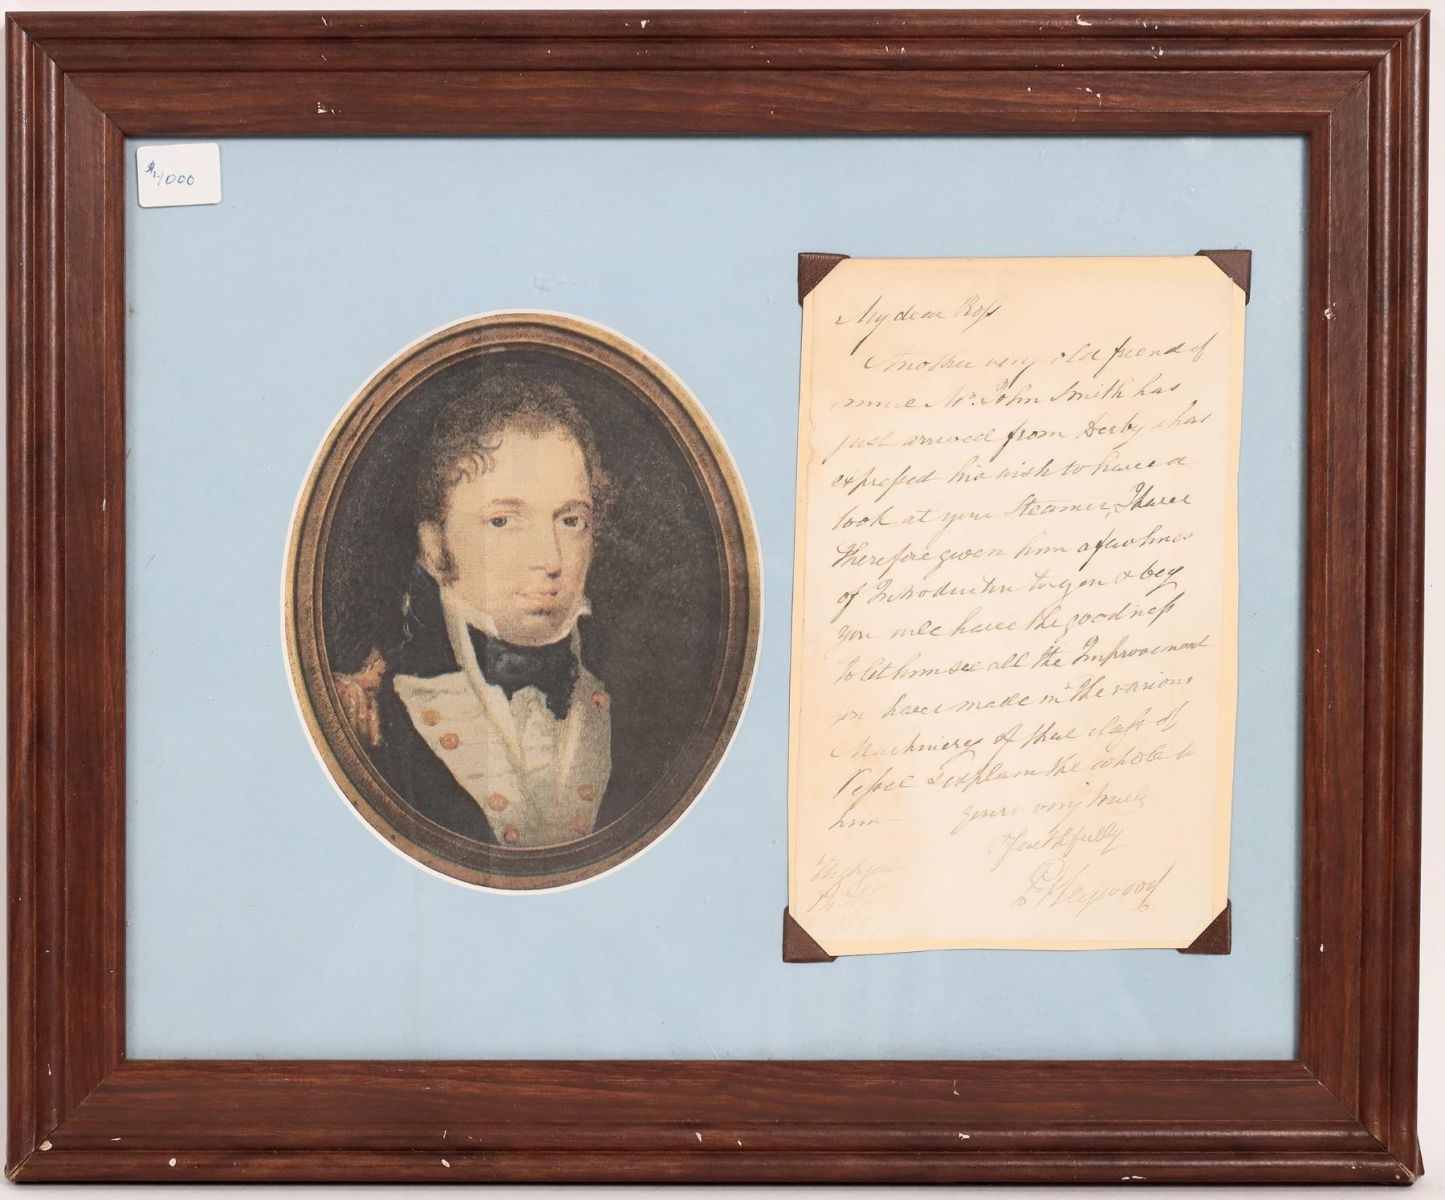 $4000
My dear Ross
Another very old friend of
mine Mr. John Smith has
just arrived from Derby & has
expressed his wish to have a
look at your Steamer, I have
therefore given him a few lines
of Introduction to you & beg
you will have the goodness
to let him see all the Improvement
you have made in the various
Machinery of that class of
Vessel & explain the whole to
him
Yours very truly
Faithfully
P Heywood
Highgate